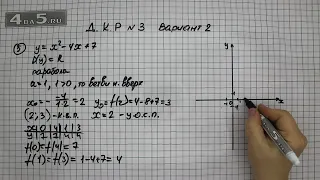 4da5.ru
Д.К.Р №3 Вариант 2
③ y = x² - 4x + 7
D(y) = R
парабола
a = 1, 1 > 0, то ветви н. вверх
x₀ = - -4/1·2 = 2 y₀ = f(2) = 4 - 8 + 7 = 3
(2; 3) - к.в.п. x = 2 - у.о.с.п.
x | 0 | 4 | 1 | 3
y | 7 | 7 | 4 | 4
f(0) = f(4) = 7
f(1) = f(3) = 1 - 4 + 7 = 4
y
1
-0 1 x
-1